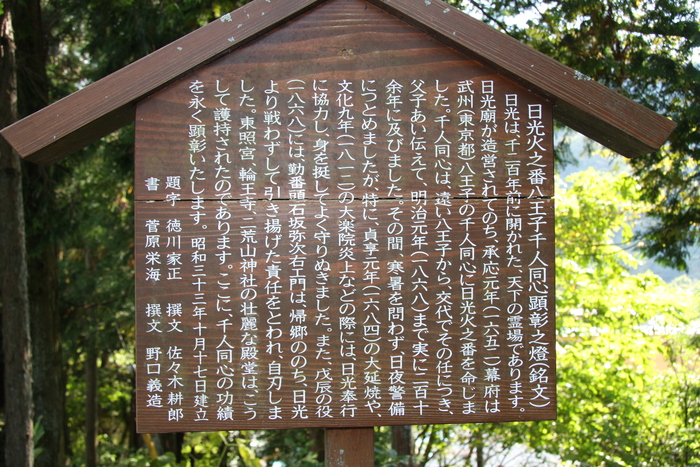 日光火之番八王子千人同心顕彰之燈（銘文）
日光は、千二百年前に開かれた、天下の霊場であります。
日光廟が造営されてのち、承応元年（一六五二）幕府は
武州（東京都）八王子の千人同心に日光火之番を命じま
した。千人同心は、遠い八王子から、交代でその任につき、
父子あい伝えて、明治元年（一八六八）まで実に二百十
余年に及びました。その間、寒暑を問わず、日夜警備
につとめましたが、特に、貞享元年（一六八四）の大延焼や、
文化九年（一八一二）の大楽院炎上などの際には、日光奉行
に協力し、身を挺してよく守りぬきました。また、戊辰の役
（一八六八）には、勤番頭石坂弥次右エ門は、帰郷ののち、日光
より戦わずして引き揚げた責任をとわれ、自刃しま
した。東照宮、輪王寺、二荒山神社の壮麗な殿堂は、こう
して護持されたのであります。ここに、千人同心の功績
を永く顕彰いたします。昭和三十三年十月十七日建立
題字 徳川家正 撰文 佐々木耕郎
書 菅原栄海 撰文 野口義造